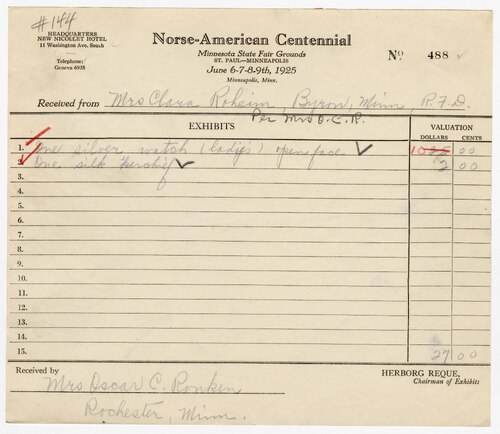 #144
HEADQUARTERS
NEW NICOLLET HOTEL
11 Washington Ave. South
Telephone:
Geneva 6935
Norse-American Centennial
Minnesota State Fair Grounds
ST. PAUL—MINNEAPOLIS
June 6-7-8-9th, 1925
Minneapolis, Minn.
No 488
Received from Mrs Clara Roheim, Byron, Minn, R.F.D.
Per Mrs O.C.R.
EXHIBITS VALUATION
DOLLARS CENTS
1. One silver watch (lady's) open face 25 00
2. One silk kerchief 2 00
3.
4.
5.
6.
7.
8.
9.
10.
11.
12.
13.
14.
15. 27 00
Received by
Mrs Oscar C. Ronken
Rochester, Minn.
HERBORG REQUE,
Chairman of Exhibits